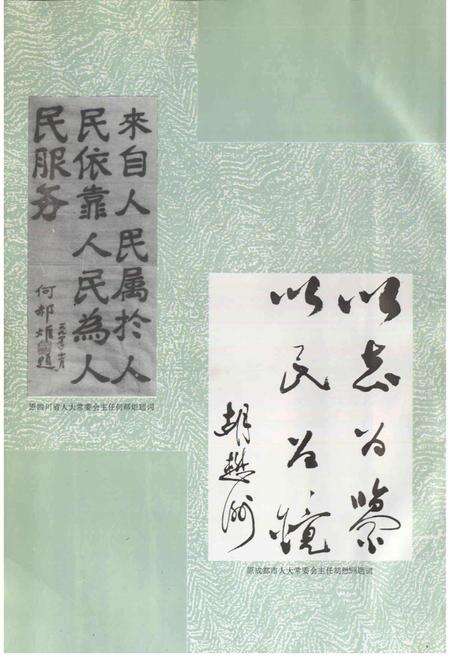 來自人民属於人
民依靠人民為人
民服务
何郝炬
题
原四川省人大常委会主任何郝炬题词
以志为鉴
以民为镜
胡懋洲
原成都市人大常委会主任胡懋洲题词